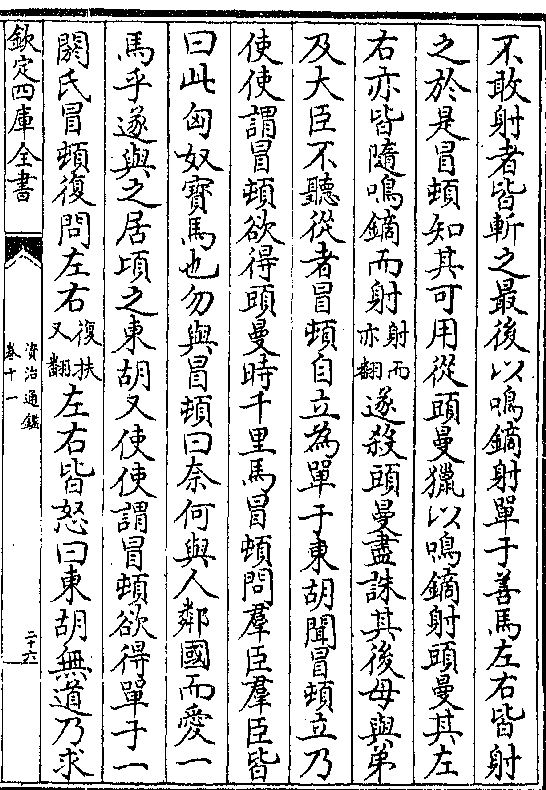 不敢射者皆斬之最後以鳴鏑射單于善馬左右皆射
之於是冒頓知其可用從頭曼獵以鳴鏑射頭曼其左
右亦皆隨鳴鏑而射射而亦翻遂殺頭曼盡誅其後母與弟
及大臣不聽從者冒頓自立為單于東胡聞冒頓立乃
使使謂冒頓欲得頭曼時千里馬冒頓問羣臣羣臣皆
曰此匈奴寶馬也勿與冒頓曰奈何與人鄰國而愛一
馬乎遂與之居頃之東胡又使使謂冒頓欲得單于一
閼氏冒頓復問左右復扶又翻左右皆怒曰東胡無道乃求
欽定四庫全書
資治通鑑
卷十一
二十六